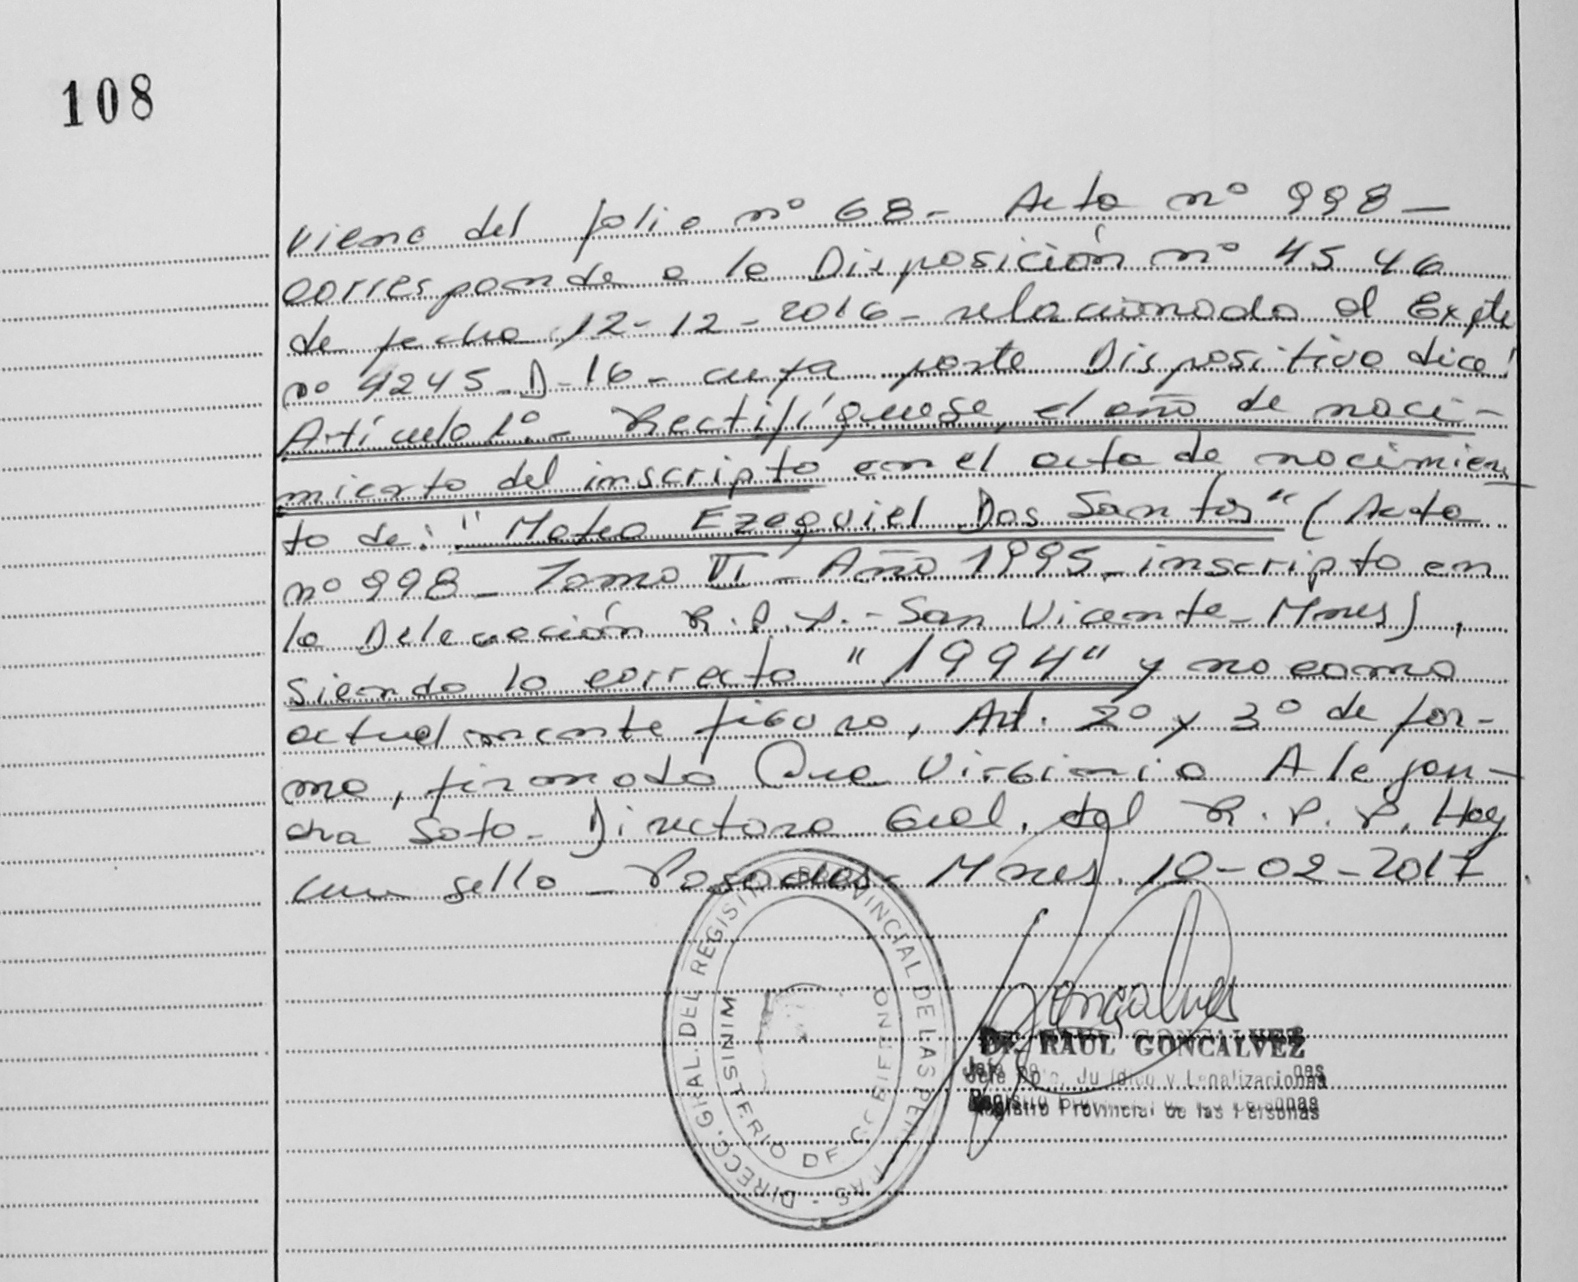 108
viene del folio nº 68- Acta nº 998-
corresponde a la Disposición nº 4546
de fecha 12-12-2016- relacionada al Expte
nº 4245-D-16- cuya parte Dispositiva dice:
Artículo 1º- Rectifíquese el año de naci-
miento del inscripto en el acta de nacimien
to de: "Mateo Ezequiel Dos Santos" (Acta
nº 998- Tomo VI- Año 1995- inscripto en
la Delegación R.P.P.- San Vicente- Mnes),
siendo lo correcto "1994" y no como
actualmente figura, Art. 2º y 3º de for-
ma, firmado Dra Virginia Alejan-
dra Soto- Directora Gral. del R.P.P. Hay
un sello- Posadas- Mnes. 10-02-2017
DIRECC. GRAL. DEL REGISTRO PROVINCIAL DE LAS PERSONAS -
MINISTERIO DE GOBIERNO
Goncalves
Dr. RAUL GONCALVEZ
Jefe Dpto. Jurídico y Legalizaciones
Registro Provincial de las Personas